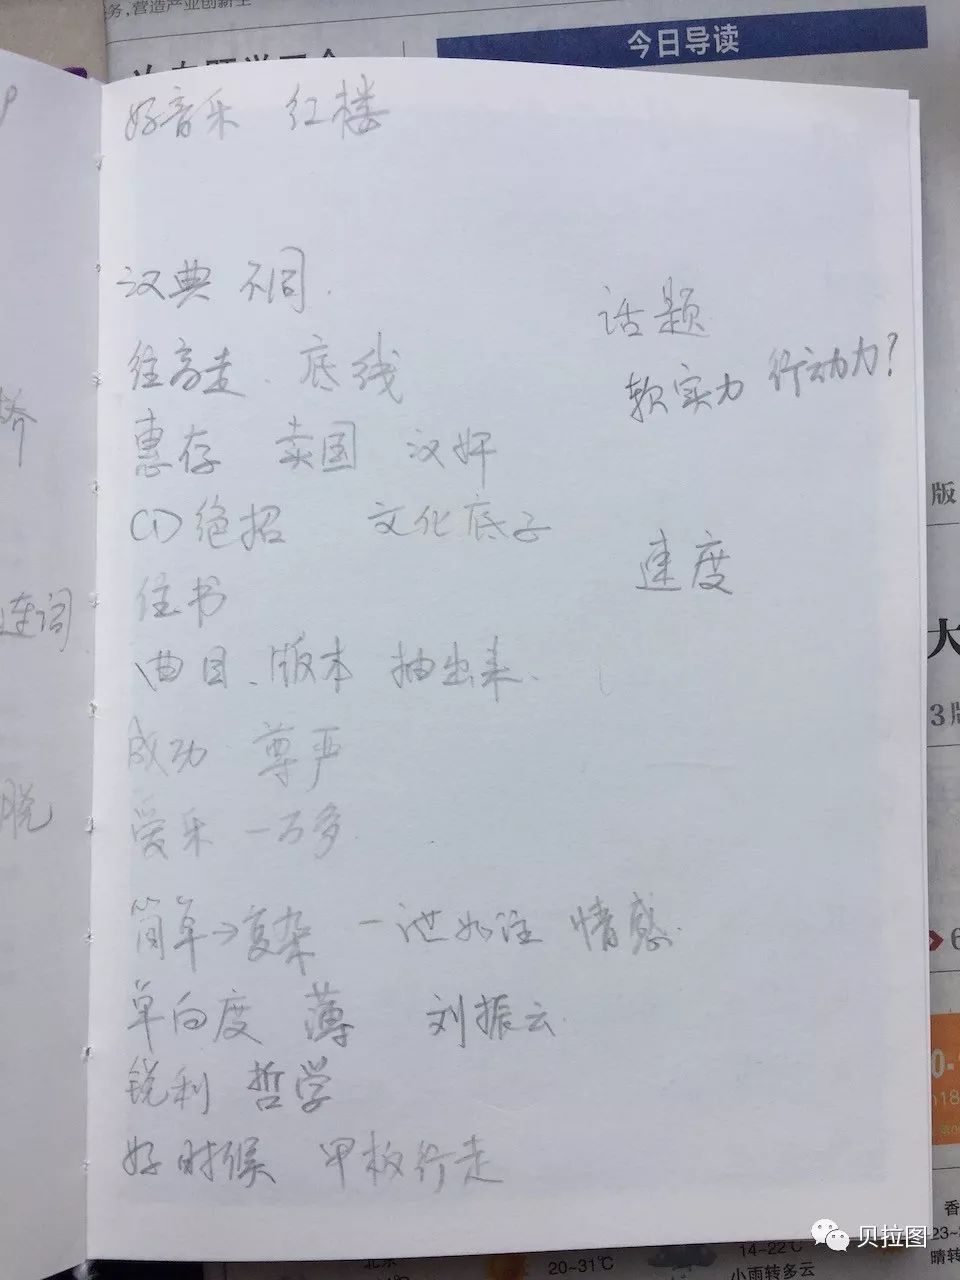 务,营造产业创新生
今日导读
好音乐 红楼
汉典 不同.
往高走. 底线
惠存 卖国 汉奸
CD绝招 文化底子
住书
曲目、版本 抽出来.
成功 尊严
爱乐 一万多.
简单→复杂 一泄如注 情感.
单向度 薄 刘振云.
锐利 哲学
好时候 甲板行走
话题
软实力 行动力?
速度
桥
连词
脱
版
大
3版
6
香
23~
晴转
北京
20~31℃
14~22℃
小雨转多云
贝拉图